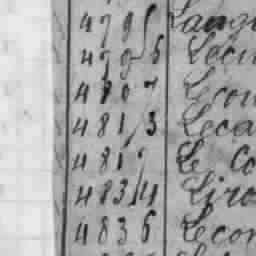 4795 Lang
4796 Leci
4807 Lecon
4813 Leca
481 Le Co
4834 Liro
4836 Lecon